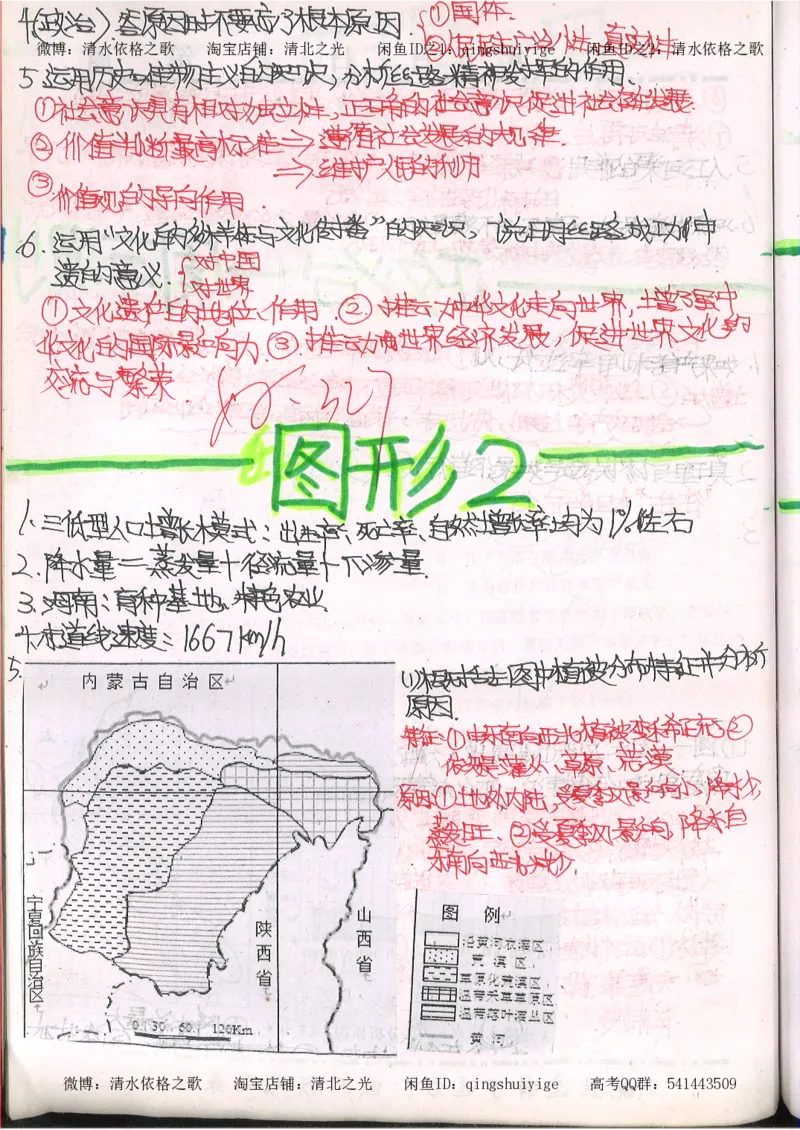 4(政治).答原因时不要忘了根本原因 ①国体.
②人民民主广泛性、真实性
微博：清水依格之歌 淘宝店铺：清北之光 闲鱼ID之1：qingshuiyige 闲鱼ID之2：清水依格之歌
5.运用历史唯物主义的知识,分析丝路精神发挥的作用、
①社会意识具有相对独立性,正确的社会意识促进社会存在发展.
②价值判断最高标准⇒遵循社会发展的规律.
⇒维护人民的利用
③价值观的导向作用.
6.运用“文化的多样性与文化传播”的知识,说明丝路成功申
遗的意义. 对中国
对世界
①文化遗产的地位、作用.②推动中华文化走向世界,增强中
华文化的国际影响力.③.推动世界经济发展,促进世界文化的
交流与繁荣.
图形2
1.三低型人口增长模式:出生率、死亡率、自然增长率均为1%左右
2.降水量=蒸发量+径流量+下渗量.
3.海南:育种基地、特色农业.
4.赤道线速度:1667km/h
5.
内蒙古自治区
宁夏回族自治区
陕西省
山西省
0 30 60 120Km
(1)根据左图中植被分布特征并分析
原因.
特征:①由东南向西北植被变稀疏②
依次是灌丛、草原、荒漠
原因①地处内陆,受夏季风影响小,降水少,
蒸发旺、②受夏季风影响,降水自
东南向西北减少.
图 例
沿黄河农灌区
荒漠区
草原化荒漠区
温带禾草草原区
温带落叶灌丛区
黄河
微博：清水依格之歌 淘宝店铺：清北之光 闲鱼ID：qingshuiyige 高考QQ群：541443509